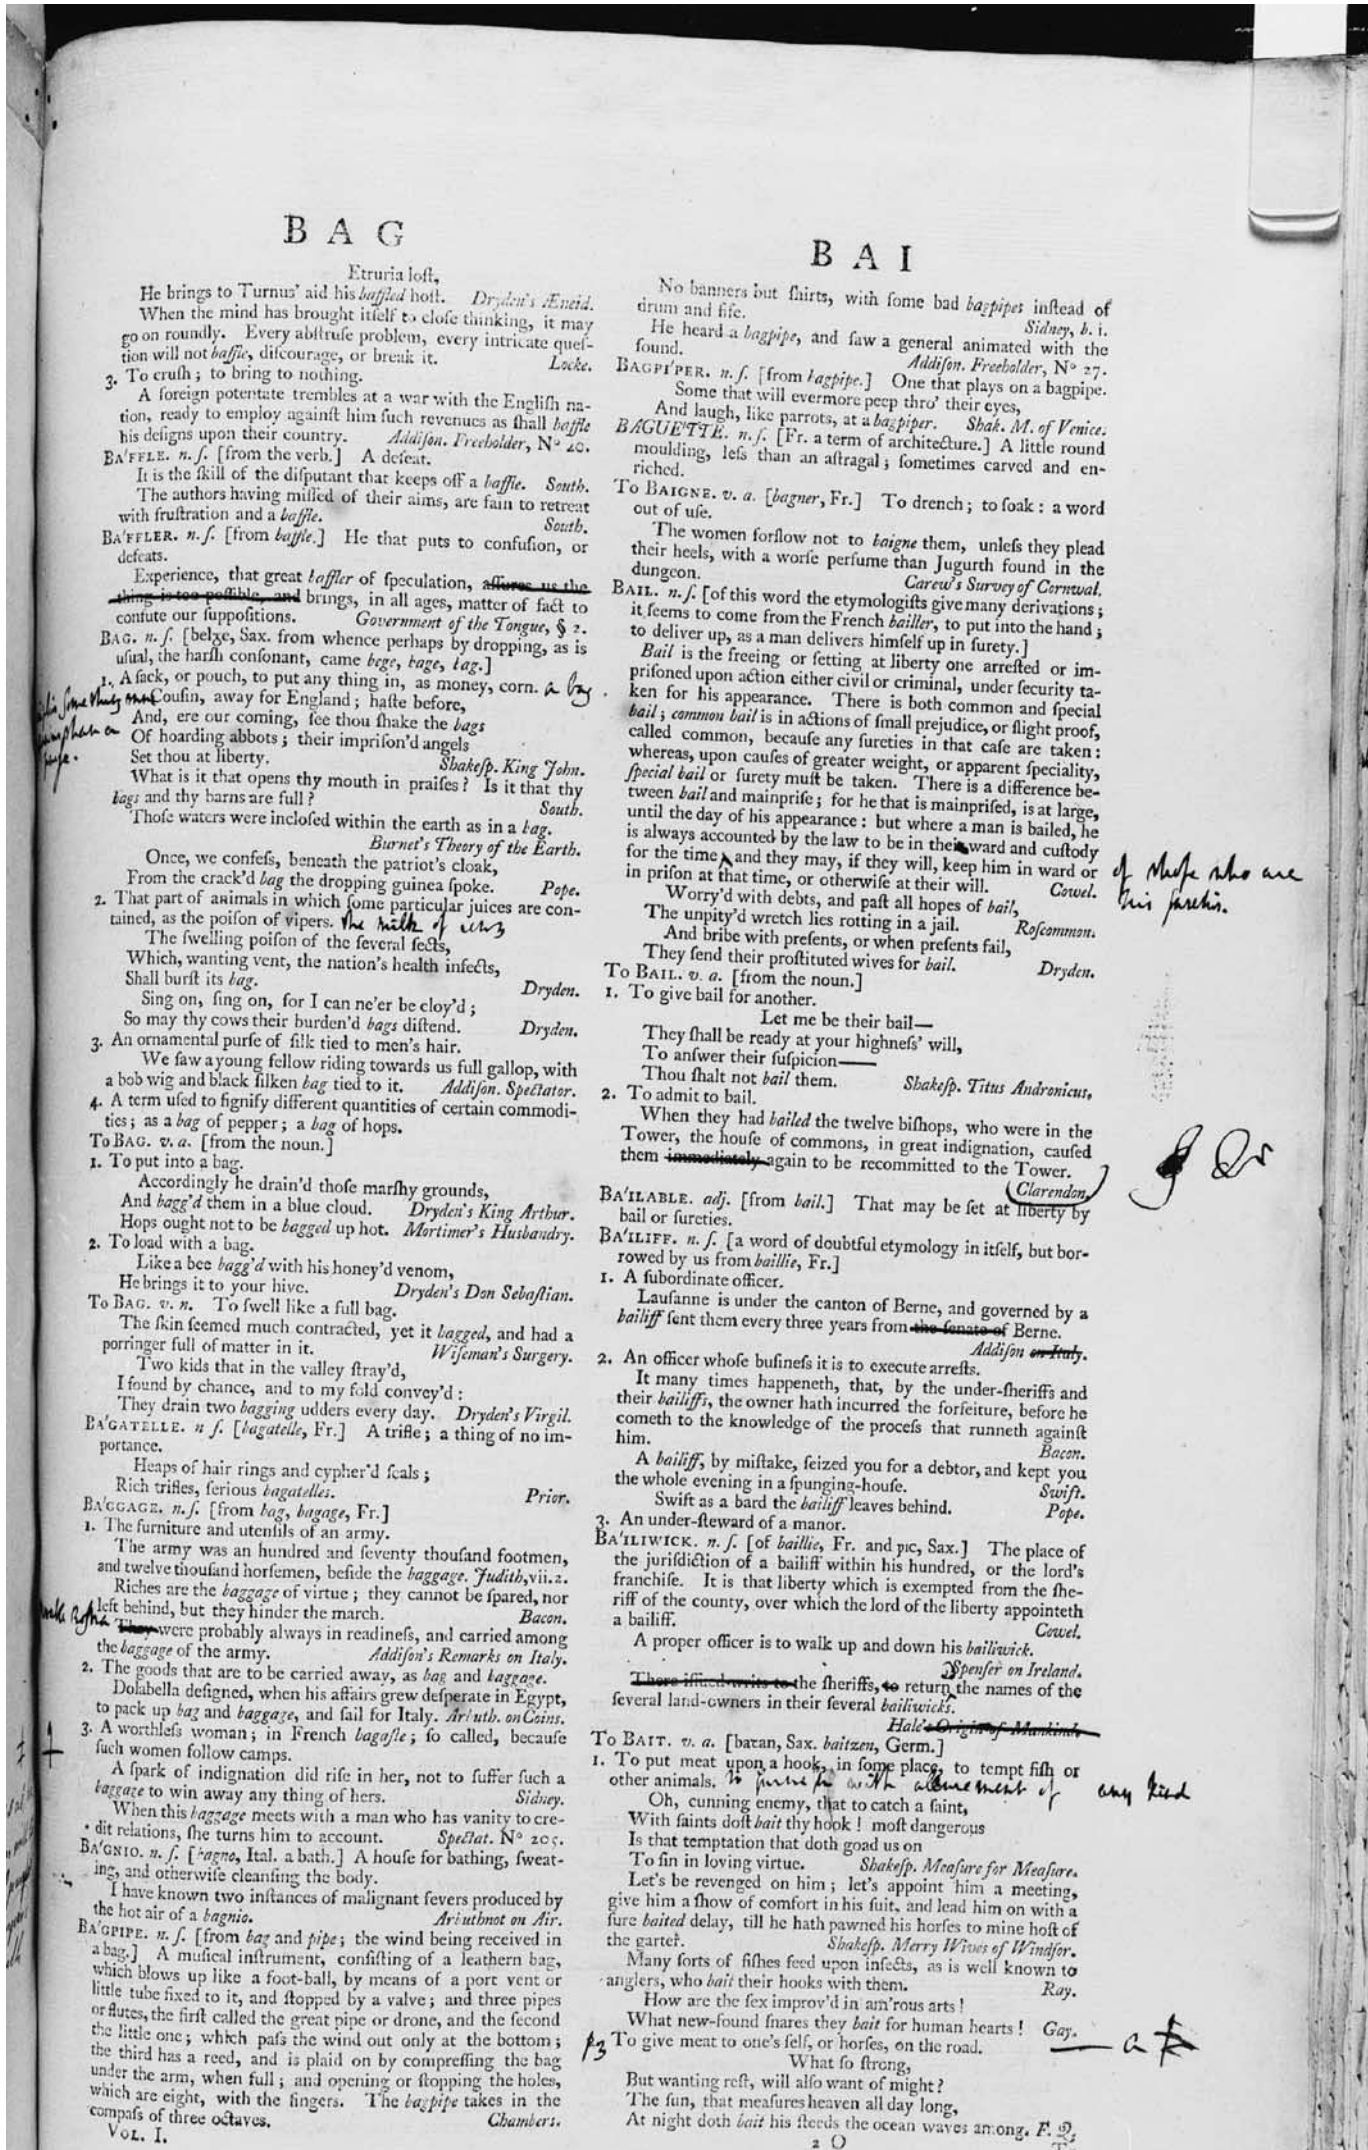 BAG
Etruria loſt,
He brings to Turnus' aid his baffled hoſt. Dryden's Æneid.
When the mind has brought itſelf to cloſe thinking, it may
go on roundly. Every abſtruſe problem, every intricate queſ-
tion will not baffle, diſcourage, or break it. Locke.
3. To cruſh; to bring to nothing.
A foreign potentate trembles at a war with the Engliſh na-
tion, ready to employ againſt him ſuch revenues as ſhall baffle
his deſigns upon their country. Addiſon. Freeholder, Nº 40.
BA'FFLE. n. ſ. [from the verb.] A defeat.
It is the ſkill of the diſputant that keeps off a baffle. South.
The authors having miſſed of their aims, are fain to retreat
with fruſtration and a baffle. South.
BA'FFLER. n. ſ. [from baffle.] He that puts to confuſion, or
defeats.
Experience, that great baffler of ſpeculation, aſſures us the
thing is too poſſible, and brings, in all ages, matter of fact to
confute our ſuppoſitions. Government of the Tongue, § 2.
BAG. n. ſ. [belȝe, Sax. from whence perhaps by dropping, as is
uſual, the harſh conſonant, came bege, bage, bag.]
1. A ſack, or pouch, to put any thing in, as money, corn. a bag
is ſomething
than a
purſe.
Couſin, away for England; haſte before,
And, ere our coming, ſee thou ſhake the bags
Of hoarding abbots; their impriſon'd angels
Set thou at liberty. Shakeſp. King John.
What is it that opens thy mouth in praiſes? Is it that thy
bags and thy barns are full? South.
Thoſe waters were incloſed within the earth as in a bag.
Burnet's Theory of the Earth.
Once, we confeſs, beneath the patriot's cloak,
From the crack'd bag the dropping guinea ſpoke. Pope.
2. That part of animals in which ſome particular juices are con-
tained, as the poiſon of vipers. the milk of
The ſwelling poiſon of the ſeveral ſects,
Which, wanting vent, the nation's health infects,
Shall burſt its bag. Dryden.
Sing on, ſing on, for I can ne'er be cloy'd;
So may thy cows their burden'd bags diſtend. Dryden.
3. An ornamental purſe of ſilk tied to men's hair.
We ſaw a young fellow riding towards us full gallop, with
a bob wig and black ſilken bag tied to it. Addiſon. Spectator.
4. A term uſed to ſignify different quantities of certain commodi-
ties; as a bag of pepper; a bag of hops.
To BAG. v. a. [from the noun.]
1. To put into a bag.
Accordingly he drain'd thoſe marſhy grounds,
And bagg'd them in a blue cloud. Dryden's King Arthur.
Hops ought not to be bagged up hot. Mortimer's Husbandry.
2. To load with a bag.
Like a bee bagg'd with his honey'd venom,
He brings it to your hive. Dryden's Don Sebaſtian.
To BAG. v. n. To ſwell like a full bag.
The ſkin ſeemed much contracted, yet it bagged, and had a
porringer full of matter in it. Wiſeman's Surgery.
Two kids that in the valley ſtray'd,
I found by chance, and to my fold convey'd:
They drain two bagging udders every day. Dryden's Virgil.
BA'GATELLE. n ſ. [bagatelle, Fr.] A trifle; a thing of no im-
portance.
Heaps of hair rings and cypher'd ſeals;
Rich trifles, ſerious bagatelles. Prior.
BA'GGAGE. n. ſ. [from bag, bagage, Fr.]
1. The furniture and utenſils of an army.
The army was an hundred and ſeventy thouſand footmen,
and twelve thouſand horſemen, beſide the baggage. Judith, vii. 2.
Riches are the baggage of virtue; they cannot be ſpared, nor
left behind, but they hinder the march. Bacon.
They were probably always in readineſs, and carried among
the baggage of the army. Addiſon's Remarks on Italy.
2. The goods that are to be carried away, as bag and baggage.
Dolabella deſigned, when his affairs grew deſperate in Egypt,
to pack up bag and baggage, and ſail for Italy. Arbuth. on Coins.
3. A worthleſs woman; in French bagaſle; ſo called, becauſe
ſuch women follow camps.
A ſpark of indignation did riſe in her, not to ſuffer ſuch a
baggage to win away any thing of hers. Sidney.
When this baggage meets with a man who has vanity to cre-
dit relations, ſhe turns him to account. Spectat. Nº 205.
BA'GNIO. n. ſ. [bagno, Ital. a bath.] A houſe for bathing, ſweat-
ing, and otherwiſe cleanſing the body.
I have known two inſtances of malignant fevers produced by
the hot air of a bagnio. Arbuthnot on Air.
BA'GPIPE. n. ſ. [from bag and pipe; the wind being received in
a bag.] A muſical inſtrument, conſiſting of a leathern bag,
which blows up like a foot-ball, by means of a port vent or
little tube fixed to it, and ſtopped by a valve; and three pipes
or flutes, the firſt called the great pipe or drone, and the ſecond
the little one; which paſs the wind out only at the bottom;
the third has a reed, and is plaid on by compreſſing the bag
under the arm, when full; and opening or ſtopping the holes,
which are eight, with the fingers. The bagpipe takes in the
compaſs of three octaves. Chambers.
VOL. I.
BAI
No banners but ſhirts, with ſome bad bagpipes inſtead of
drum and fife. Sidney, b. i.
He heard a bagpipe, and ſaw a general animated with the
ſound. Addiſon. Freeholder, Nº 27.
BAGPI'PER. n. ſ. [from bagpipe.] One that plays on a bagpipe.
Some that will evermore peep thro' their eyes,
And laugh, like parrots, at a bagpiper. Shak. M. of Venice.
BAGUE'TTE. n. ſ. [Fr. a term of architecture.] A little round
moulding, leſs than an aſtragal; ſometimes carved and en-
riched.
To BAIGNE. v. a. [bagner, Fr.] To drench; to ſoak: a word
out of uſe.
The women forſlow not to baigne them, unleſs they plead
their heels, with a worſe perfume than Jugurth found in the
dungeon. Carew's Survey of Cornwal.
BAIL. n. ſ. [of this word the etymologiſts give many derivations;
it ſeems to come from the French bailler, to put into the hand;
to deliver up, as a man delivers himſelf up in ſurety.]
Bail is the freeing or ſetting at liberty one arreſted or im-
priſoned upon action either civil or criminal, under ſecurity ta-
ken for his appearance. There is both common and ſpecial
bail; common bail is in actions of ſmall prejudice, or ſlight proof,
called common, becauſe any ſureties in that caſe are taken:
whereas, upon cauſes of greater weight, or apparent ſpeciality,
ſpecial bail or ſurety muſt be taken. There is a difference be-
tween bail and mainpriſe; for he that is mainpriſed, is at large,
until the day of his appearance: but where a man is bailed, he
is always accounted by the law to be in their ward and cuſtody
for the time, and they may, if they will, keep him in ward or of thoſe who are
in priſon at that time, or otherwiſe at their will. Cowel. his ſureties.
Worry'd with debts, and paſt all hopes of bail,
The unpity'd wretch lies rotting in a jail. Roſcommon.
And bribe with preſents, or when preſents fail,
They ſend their proſtituted wives for bail. Dryden.
To BAIL. v. a. [from the noun.]
1. To give bail for another.
Let me be their bail—
They ſhall be ready at your highneſs' will,
To anſwer their ſuſpicion——
Thou ſhalt not bail them. Shakeſp. Titus Andronicus.
2. To admit to bail.
When they had bailed the twelve biſhops, who were in the
Tower, the houſe of commons, in great indignation, cauſed
them immediately again to be recommitted to the Tower.
Clarendon.
BA'ILABLE. adj. [from bail.] That may be ſet at liberty by
bail or ſureties.
BA'ILIFF. n. ſ. [a word of doubtful etymology in itſelf, but bor-
rowed by us from baillie, Fr.]
1. A ſubordinate officer.
Lauſanne is under the canton of Berne, and governed by a
bailiff ſent them every three years from the ſenate of Berne.
Addiſon on Italy.
2. An officer whoſe buſineſs it is to execute arreſts.
It many times happeneth, that, by the under-ſheriffs and
their bailiffs, the owner hath incurred the forfeiture, before he
cometh to the knowledge of the proceſs that runneth againſt
him. Bacon.
A bailiff, by miſtake, ſeized you for a debtor, and kept you
the whole evening in a ſpunging-houſe. Swift.
Swift as a bard the bailiff leaves behind. Pope.
3. An under-ſteward of a manor.
BA'ILIWICK. n. ſ. [of baillie, Fr. and ƿic, Sax.] The place of
the juriſdiction of a bailiff within his hundred, or the lord's
franchiſe. It is that liberty which is exempted from the ſhe-
riff of the county, over which the lord of the liberty appointeth
a bailiff. Cowel.
A proper officer is to walk up and down his bailiwick.
Spenſer on Ireland.
There iſſued writs to the ſheriffs, to return the names of the
ſeveral land-owners in their ſeveral bailiwicks.
Hale's Origin of Mankind.
To BAIT. v. a. [baꞇan, Sax. baitzen, Germ.]
1. To put meat upon a hook, in ſome place, to tempt fiſh or
other animals. with allurement of any kind
Oh, cunning enemy, that to catch a ſaint,
With ſaints doſt bait thy hook! moſt dangerous
Is that temptation that doth goad us on
To ſin in loving virtue. Shakeſp. Meaſure for Meaſure.
Let's be revenged on him; let's appoint him a meeting,
give him a ſhow of comfort in his ſuit, and lead him on with a
fine baited delay, till he hath pawned his horſes to mine hoſt of
the garter. Shakeſp. Merry Wives of Windſor.
Many ſorts of fiſhes feed upon inſects, as is well known to
anglers, who bait their hooks with them. Ray.
How are the ſex improv'd in am'rous arts!
What new-found ſnares they bait for human hearts! Gay.
3 To give meat to one's ſelf, or horſes, on the road.
What ſo ſtrong,
But wanting reſt, will alſo want of might?
The ſun, that meaſures heaven all day long,
At night doth bait his ſteeds the ocean waves among. F. Q.
2 O